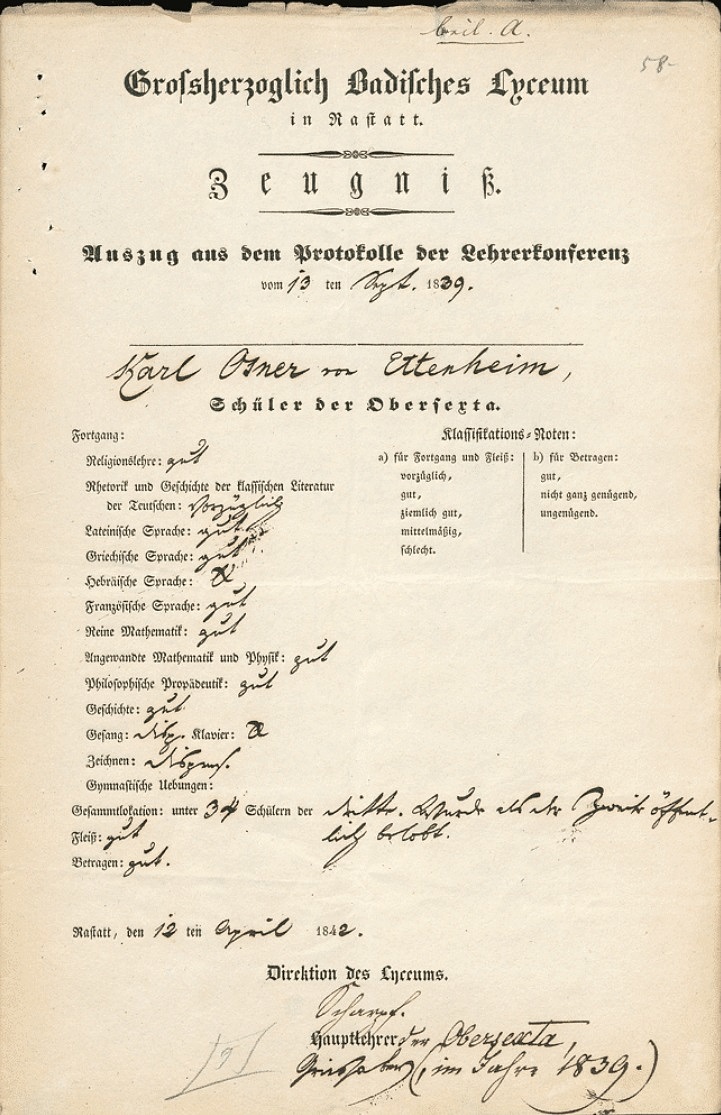 beil. A.
58
Grossherzoglich Badisches Lyceum
in Rastatt.
Zeugniß.
Auszug aus dem Protokolle der Lehrerkonferenz
vom 13 ten Sept. 1839.
Karl Osner von Ettenheim,
Schüler der Obersexta.
Fortgang:
Religionslehre: gut
Rhetorik und Geschichte der klassischen Literatur
der Teutschen: Vorzüglich
Lateinische Sprache: gut
Griechische Sprache: gut
Hebräische Sprache:
Französische Sprache: gut
Reine Mathematik: gut
Angewandte Mathematik und Physik: gut
Philosophische Propädeutik: gut
Geschichte: gut
Gesang: disp. Klavier:
Zeichnen: dispens.
Gymnastische Uebungen:
Klassifikations-Noten:
a) für Fortgang und Fleiß:
vorzüglich,
gut,
ziemlich gut,
mittelmäßig,
schlecht.
b) für Betragen:
gut,
nicht ganz genügend,
ungenügend.
Gesammtlokation: unter 34 Schülern der dritte. Wurde als der Zweite öffent-
lich belobt.
Fleiß: gut
Betragen: gut.
Rastatt, den 12 ten April 1842.
Direktion des Lyceums.
Scharpf.
Hauptlehrer der Obersexta,
Grieshaber (im Jahre 1839.)
[9]